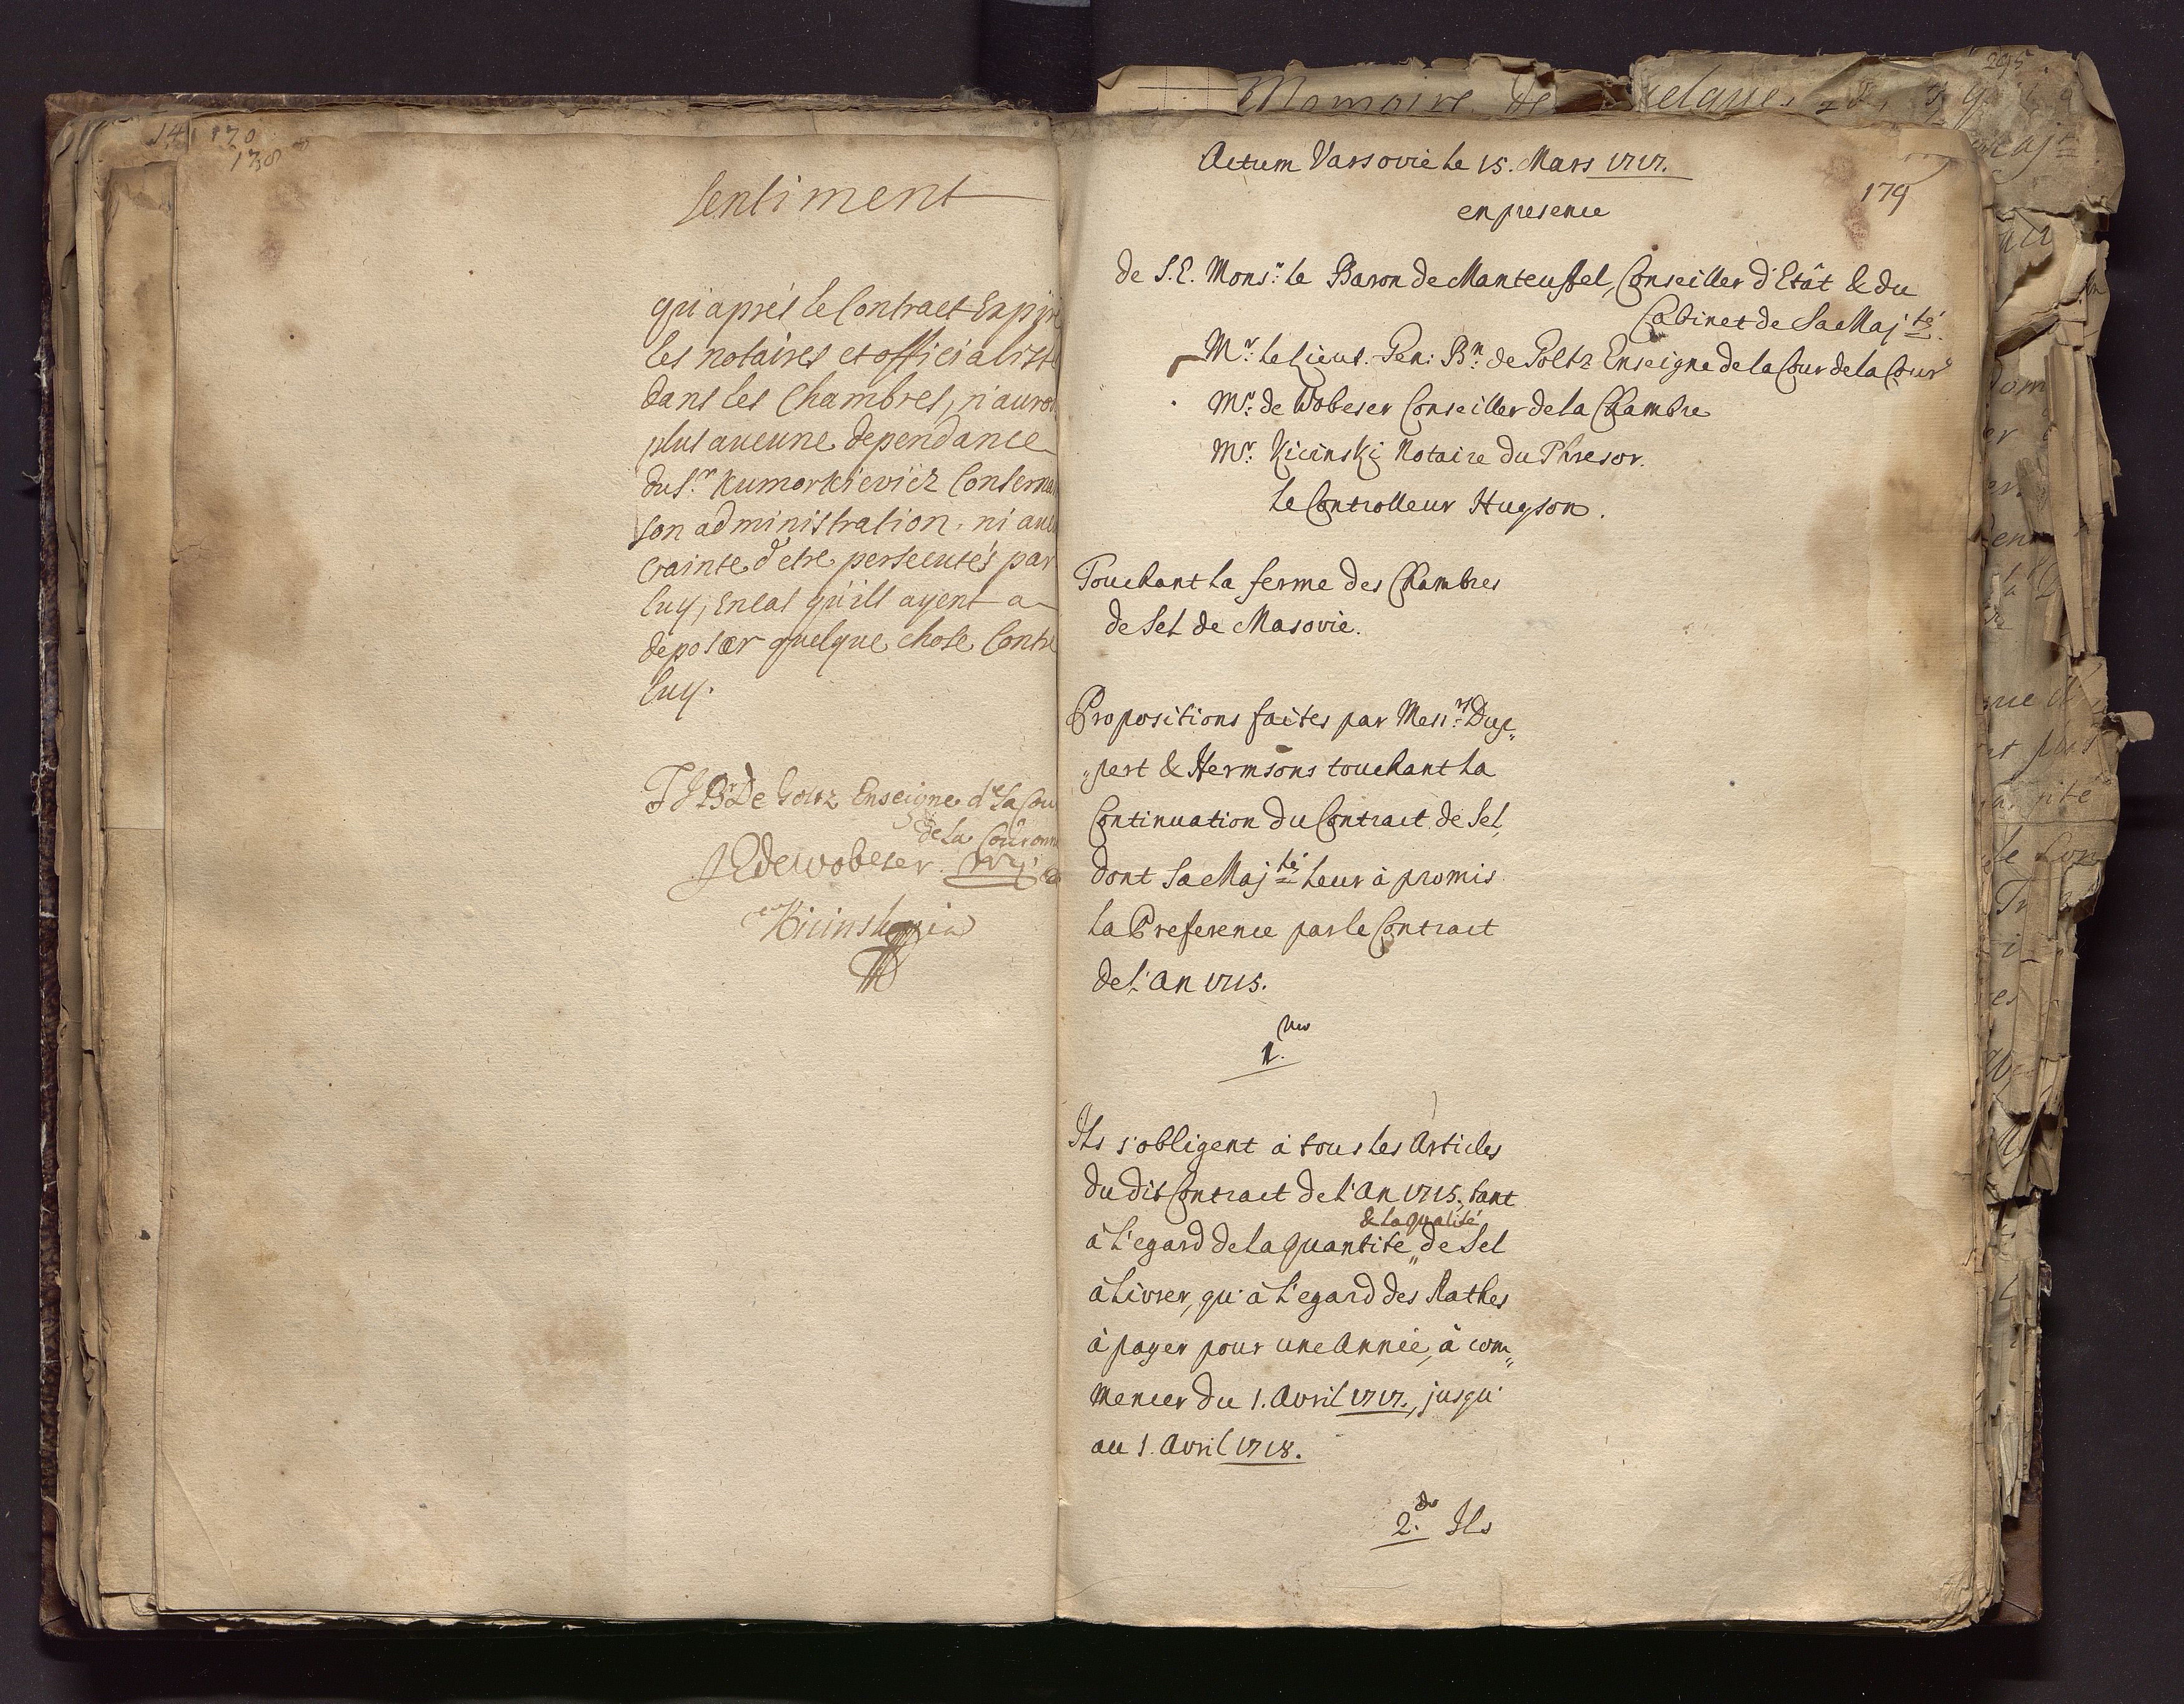 178
Sentiment
qu'aprés le Contract Expiré
les notaires et officialist
dans les Chambres, n'auro
plus aucune dependance
du Sr. Kumorkieviéz Consernan
son administration, ni aucu
crainte d'etre persecutés par
luy, En cas qu'ils ayent a
deposer quelque chose Contre
luy.
De Goltz Enseigne de la Cou
de la Couronn
de Wobeser.
Kicinsky
Memoire de quelques
205
Maj té
Actum Varsovie le 15. Mars 1717.
179
en presence
de S.E. Monsr: le Baron de Manteuffel, Conseiller d'Etât & du
Cabinet de Sa Maj té.
Mr: le Lieut. Gen: Bn: de Goltz Enseigne de la Cour de la Cour
Mr: de Wobeser Conseiller de la Chambre
Mr: Kicinski Notaire du Thresor.
le Controlleur Hugson.
Touchant la ferme des Chambres
de Sel de Masovie.
Propositions faites par Messrs: Dup„
„pert & Hermsons touchant la
Continuation du Contract de Sel,
dont Sa Maj té leur à promis
la Preference par le Contract
de l'An 1715.
1.mo
Ils s'obligent à tous les Articles
du dit Contract de l'An 1715, tant
& la qualité
à l'egard de la quantité „ de Sel
à livrer, qu'à l'egard des Rathes
à payer pour une Année, à com„
mencer du 1. Avril 1717., jusqu'
au 1. Avril 1718.
2.do Ils